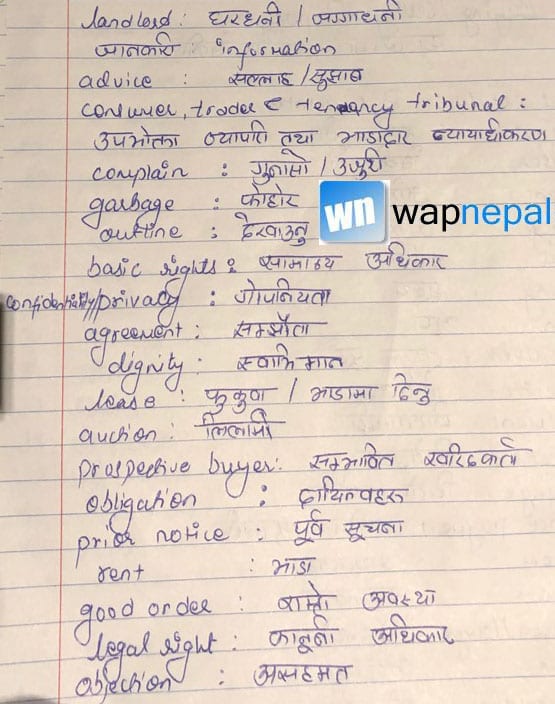 landlord : घरधनी / जग्गाधनी
जानकारी : information
advice : सल्लाह / सुझाब
consumer, trader & tenancy tribunal :
उपभोक्ता व्यापारि तथा भाडादार न्यायाधीकरण
complain : गुनासो / उजुरी
garbage : फोहोर
wn wapnepal
outline : देखाउनु
basic rights : सामान्य अधिकार
confidentiality/privacy : गोपनियता
agreement : सम्झौता
dignity : स्वाभिमान
lease : फुकुवा / भाडामा दिनु
auction : लिलामी
prospective buyer : सम्भावित खरिदकर्ता
obligation : दायित्वहरू
prior notice : पूर्व सूचना
rent : भाडा
good order : राम्रो अवस्था
legal right : कानूनी अधिकार
objection : असहमत